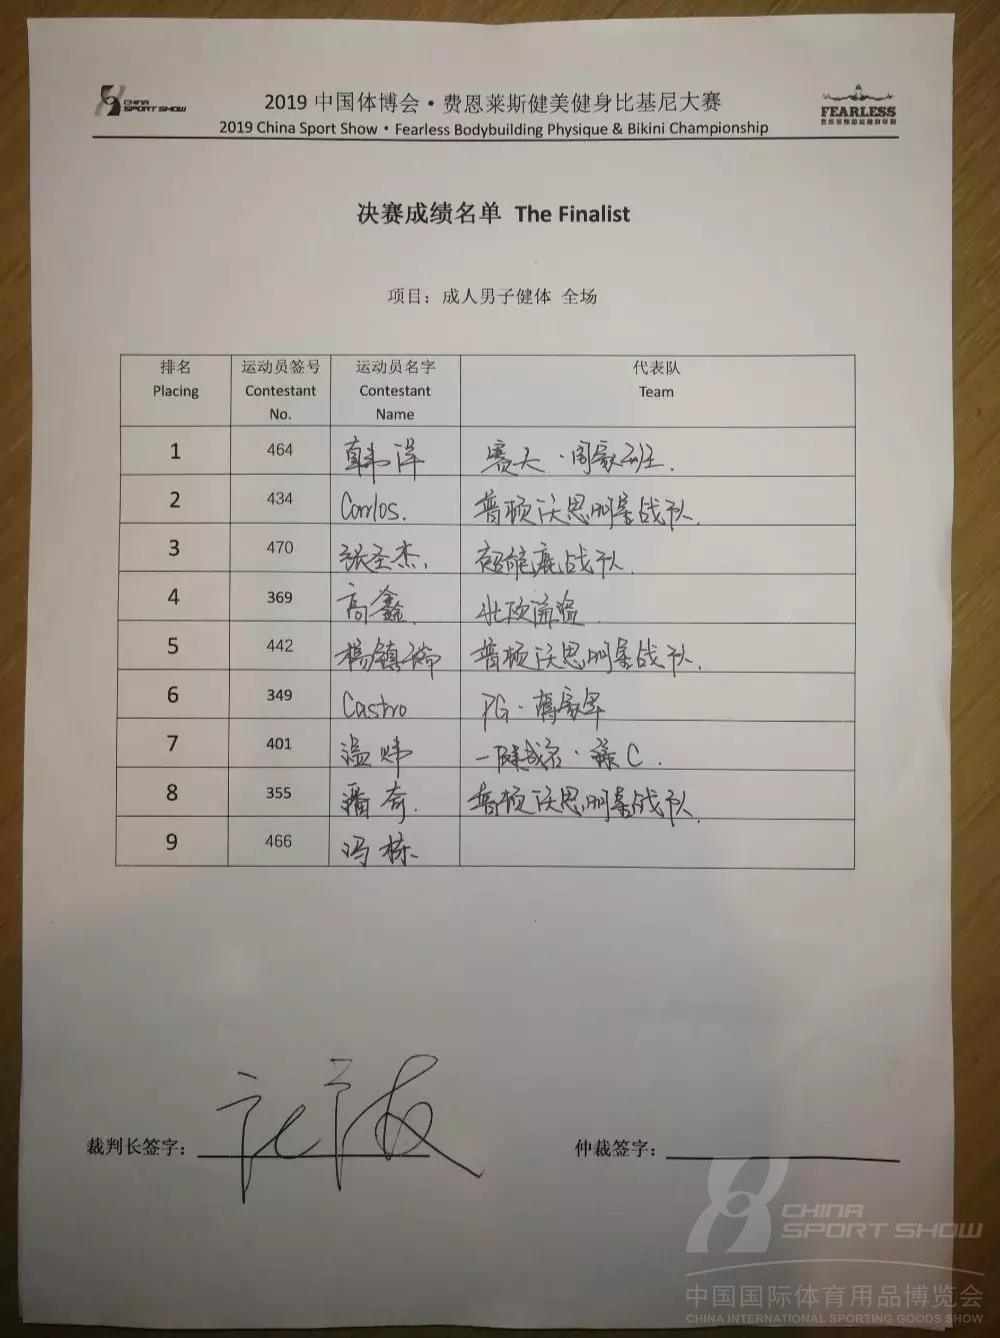 CHINA
SPORT SHOW
2019 中国体博会·费恩莱斯健美健身比基尼大赛
2019 China Sport Show • Fearless Bodybuilding Physique & Bikini Championship
FEARLESS
决赛成绩名单 The Finalist
项目：成人男子健体 全场
排名 运动员签号 运动员名字 代表队
Placing Contestant Contestant Team
No. Name
1 464 韩洋 赛夫·周毅班.
2 434 Carlos. 普顿沃思明星战队.
3 470 张圣杰. 超能鹿战队.
4 369 高鑫. 北欧海盗.
5 442 杨镇瑜 普顿沃思明星战队.
6 349 Castro PG·蒋家军
7 401 温炜 一健成名·C.
8 355 潘奇. 普顿沃思明星战队.
9 466 冯栋.
裁判长签字：
仲裁签字：
CHINA
SPORT SHOW
中国国际体育用品博览会
CHINA INTERNATIONAL SPORTING GOODS SHOW